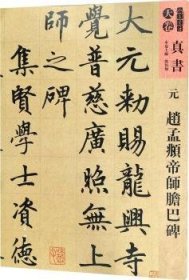 天卷
真書
元 趙孟頫帝師膽巴碑
大元勑賜龍興寺
覺普慈廣照無上
師之碑
集賢學士資德